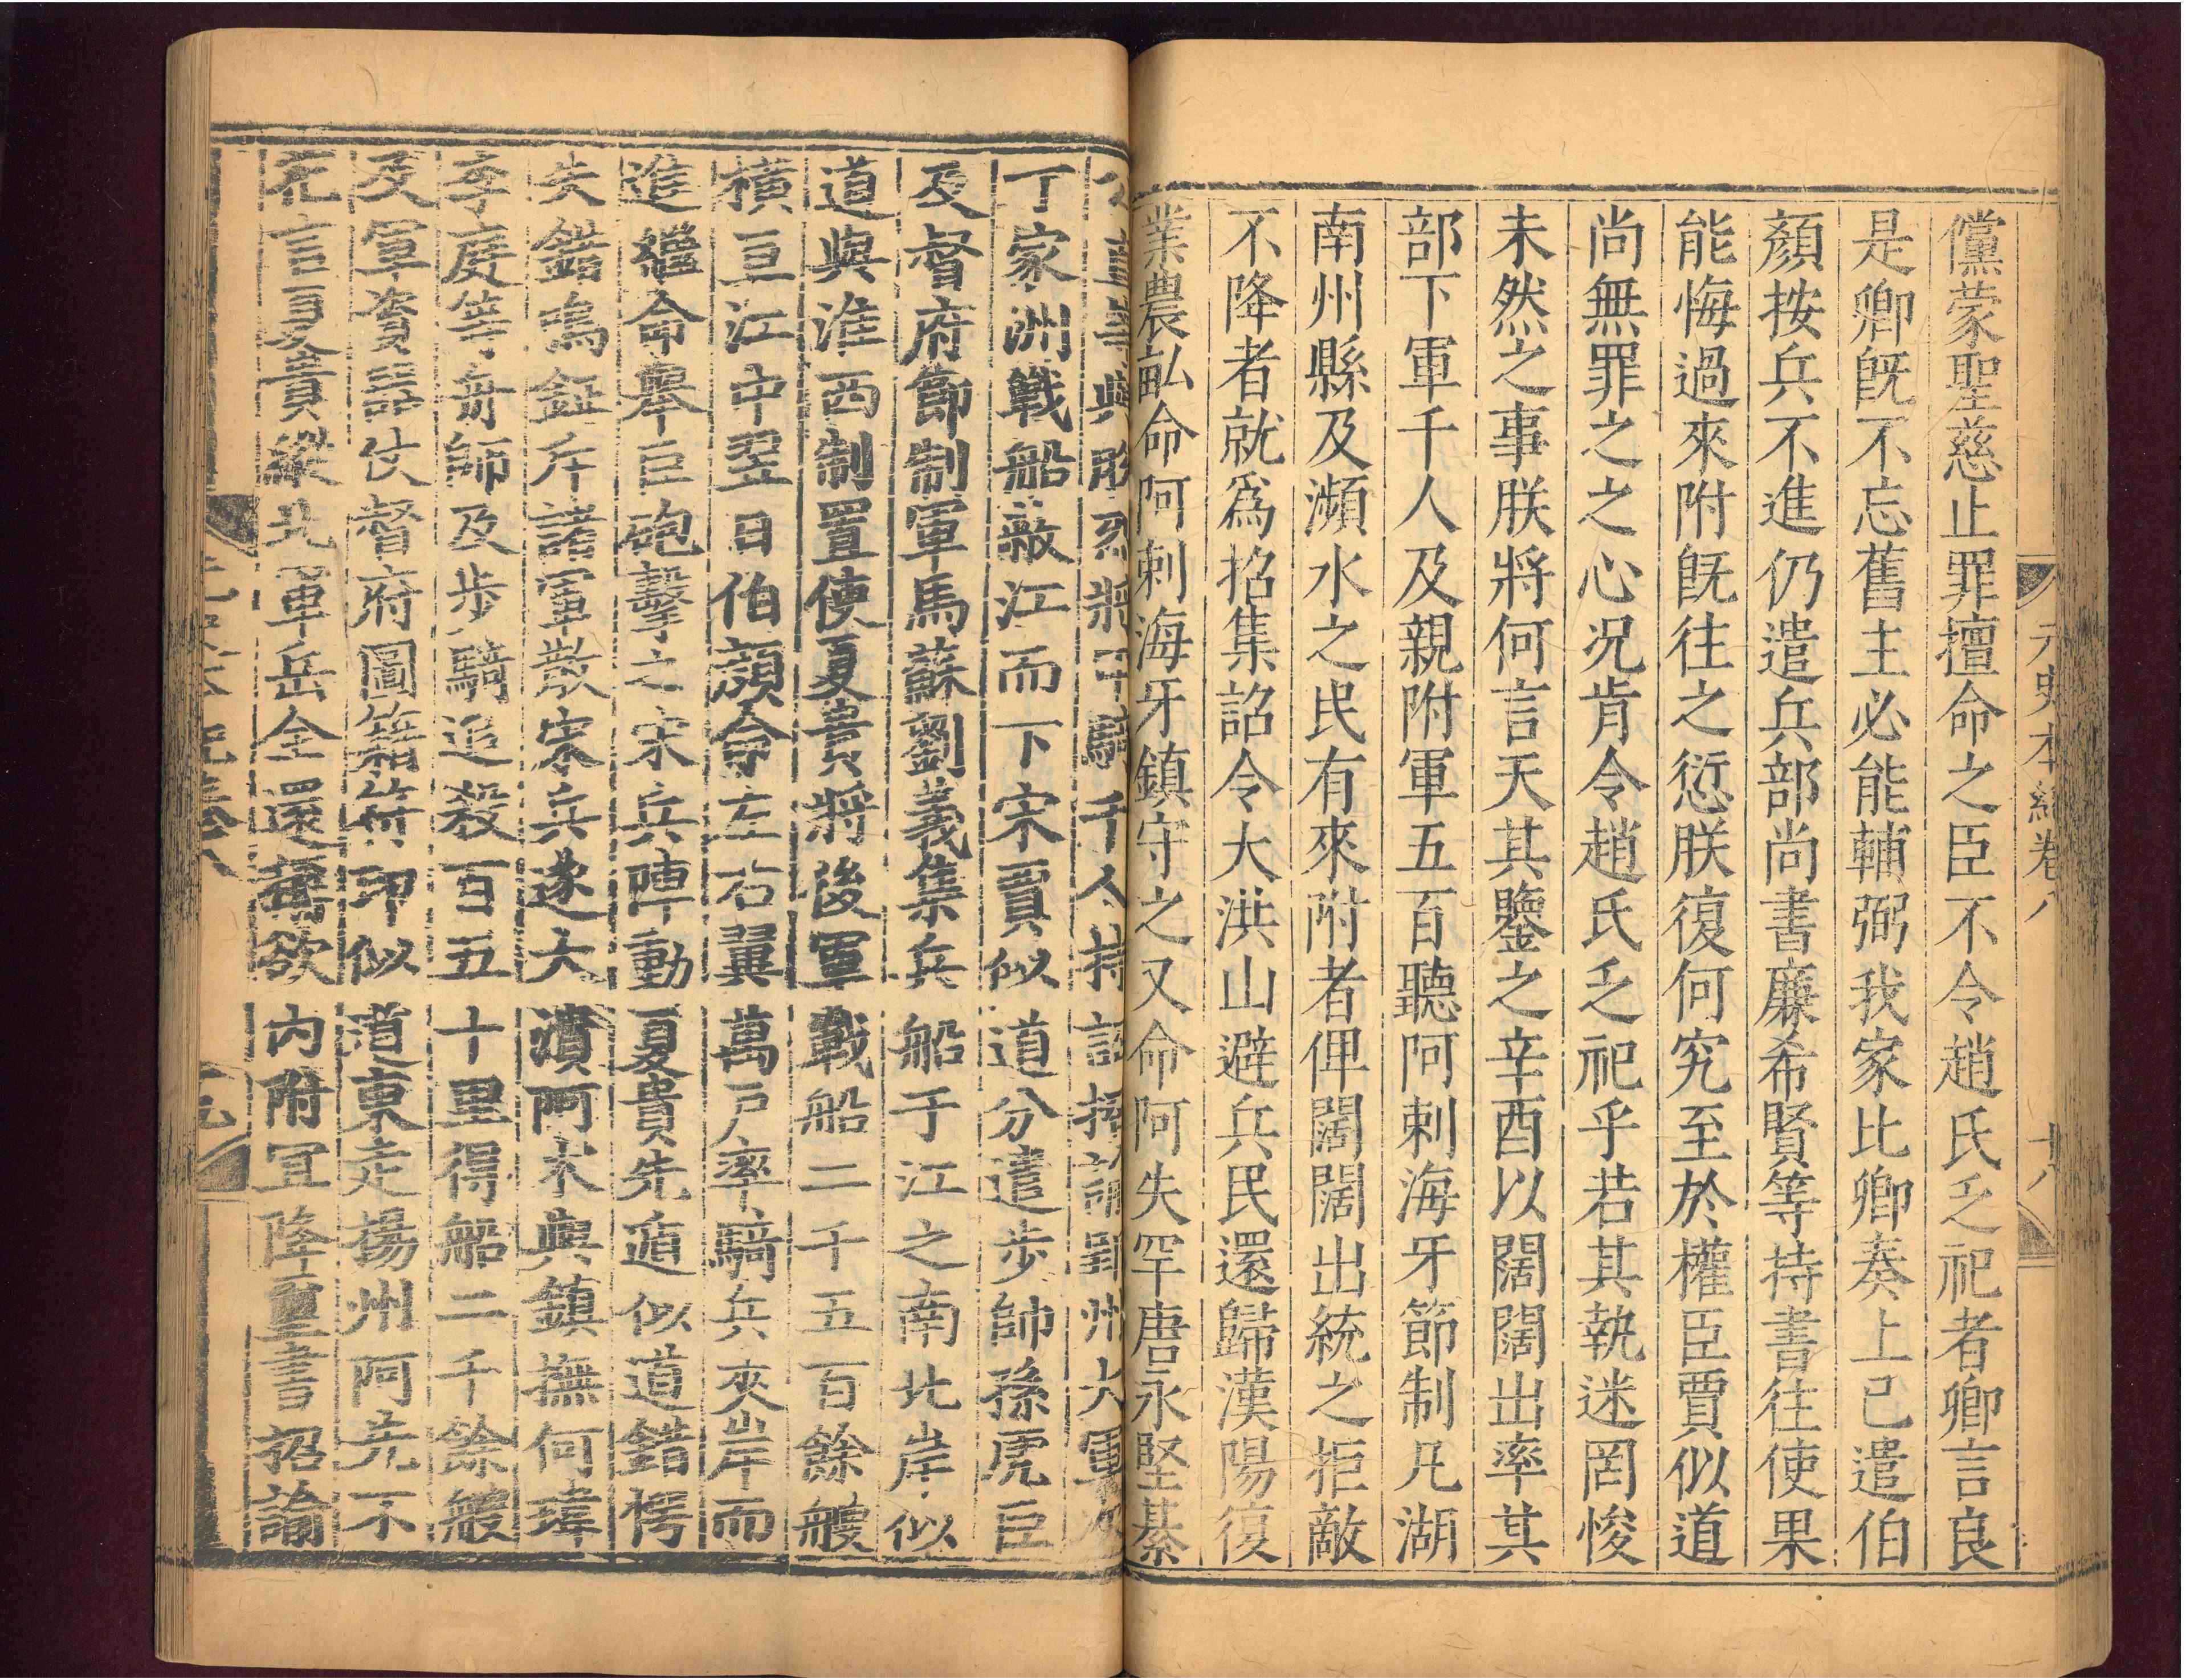 元史本紀卷八 十八
儻蒙聖慈止罪擅命之臣不令趙氏乏祀者卿言良
是卿旣不忘舊主必能輔弼我家比卿奏上已遣伯
顏按兵不進仍遣兵部尚書廉希賢等持書往使果
能悔過來附旣往之愆朕復何究至於權臣賈似道
尚無罪之之心况肯令趙氏乏祀乎若其執迷罔悛
未然之事朕將何言天其鑒之辛酉以闊闊出率其
部下軍千人及親附軍五百聽阿剌海牙節制凡湖
南州縣及瀕水之民有來附者俾闊闊出統之拒敵
不降者就爲招集詔令大洪山避兵民還歸漢陽復
業農畝命阿剌海牙鎮守之又命阿失罕唐永堅綦
將甲騎千人持詔招諭郢州大軍
丁家洲戰船蔽江而下宋賈似道分遣步帥孫虎臣
及督府節制軍馬蘇劉義集兵船于江之南北岸似
道與淮西制置使夏貴將後軍戰船二千五百餘艘
橫亘江中翌日伯顏命左右翼萬戶率騎兵夾岸而
進繼命舉巨砲擊之宋兵陣動夏貴先遁似道錯愕
失措鳴鉦斥諸軍散宋兵遂大潰阿术與鎮撫何瑋
李庭等舟師及步騎追殺百五十里得船二千餘艘
及軍資器仗督府圖籍符印似道東走揚州阿先不
花言夏貴縱北軍岳全還稱欲內附宜降璽書招諭
卷八